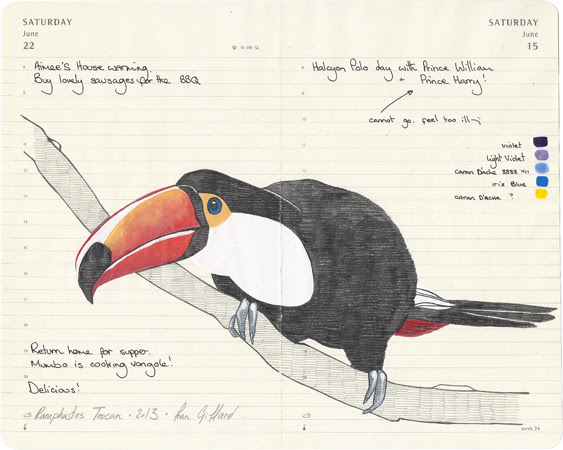 SATURDAY
June
22
Aimee's House warming.
Buy lovely sausages for the BBQ
Return home for supper.
Mumbo is cooking vongole!
Delicious!
Ramphastos Toucan · 2013 · Fran Giffard
SATURDAY
June
15
Halcyon Polo day with Prince William
+ Prince Harry!
cannot go. feel too ill
violet
light violet
caran D'Ache
iris Blue
caran D'Ache ?
week 24